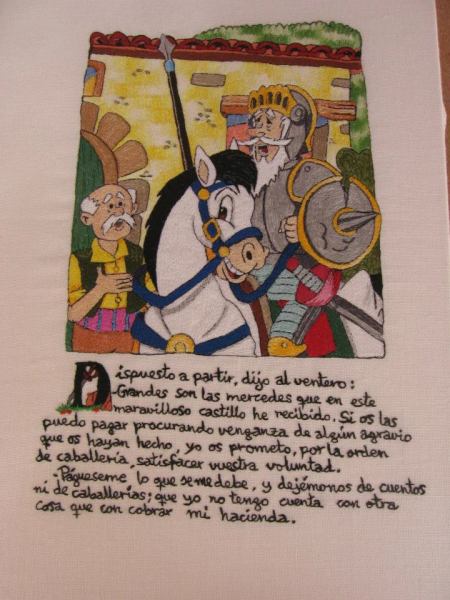 Dispuesto a partir, dijo al ventero:
-Grandes son las mercedes que en este
maravilloso castillo he recibido. Si os las
puedo pagar procurando venganza de algún agravio
que os hayan hecho, yo os prometo, por la orden
de caballería, satisfacer vuestra voluntad.
Págueseme lo que se me debe, y dejémonos de cuentos
ni de caballerías; que yo no tengo cuenta con otra
cosa que con cobrar mi hacienda.